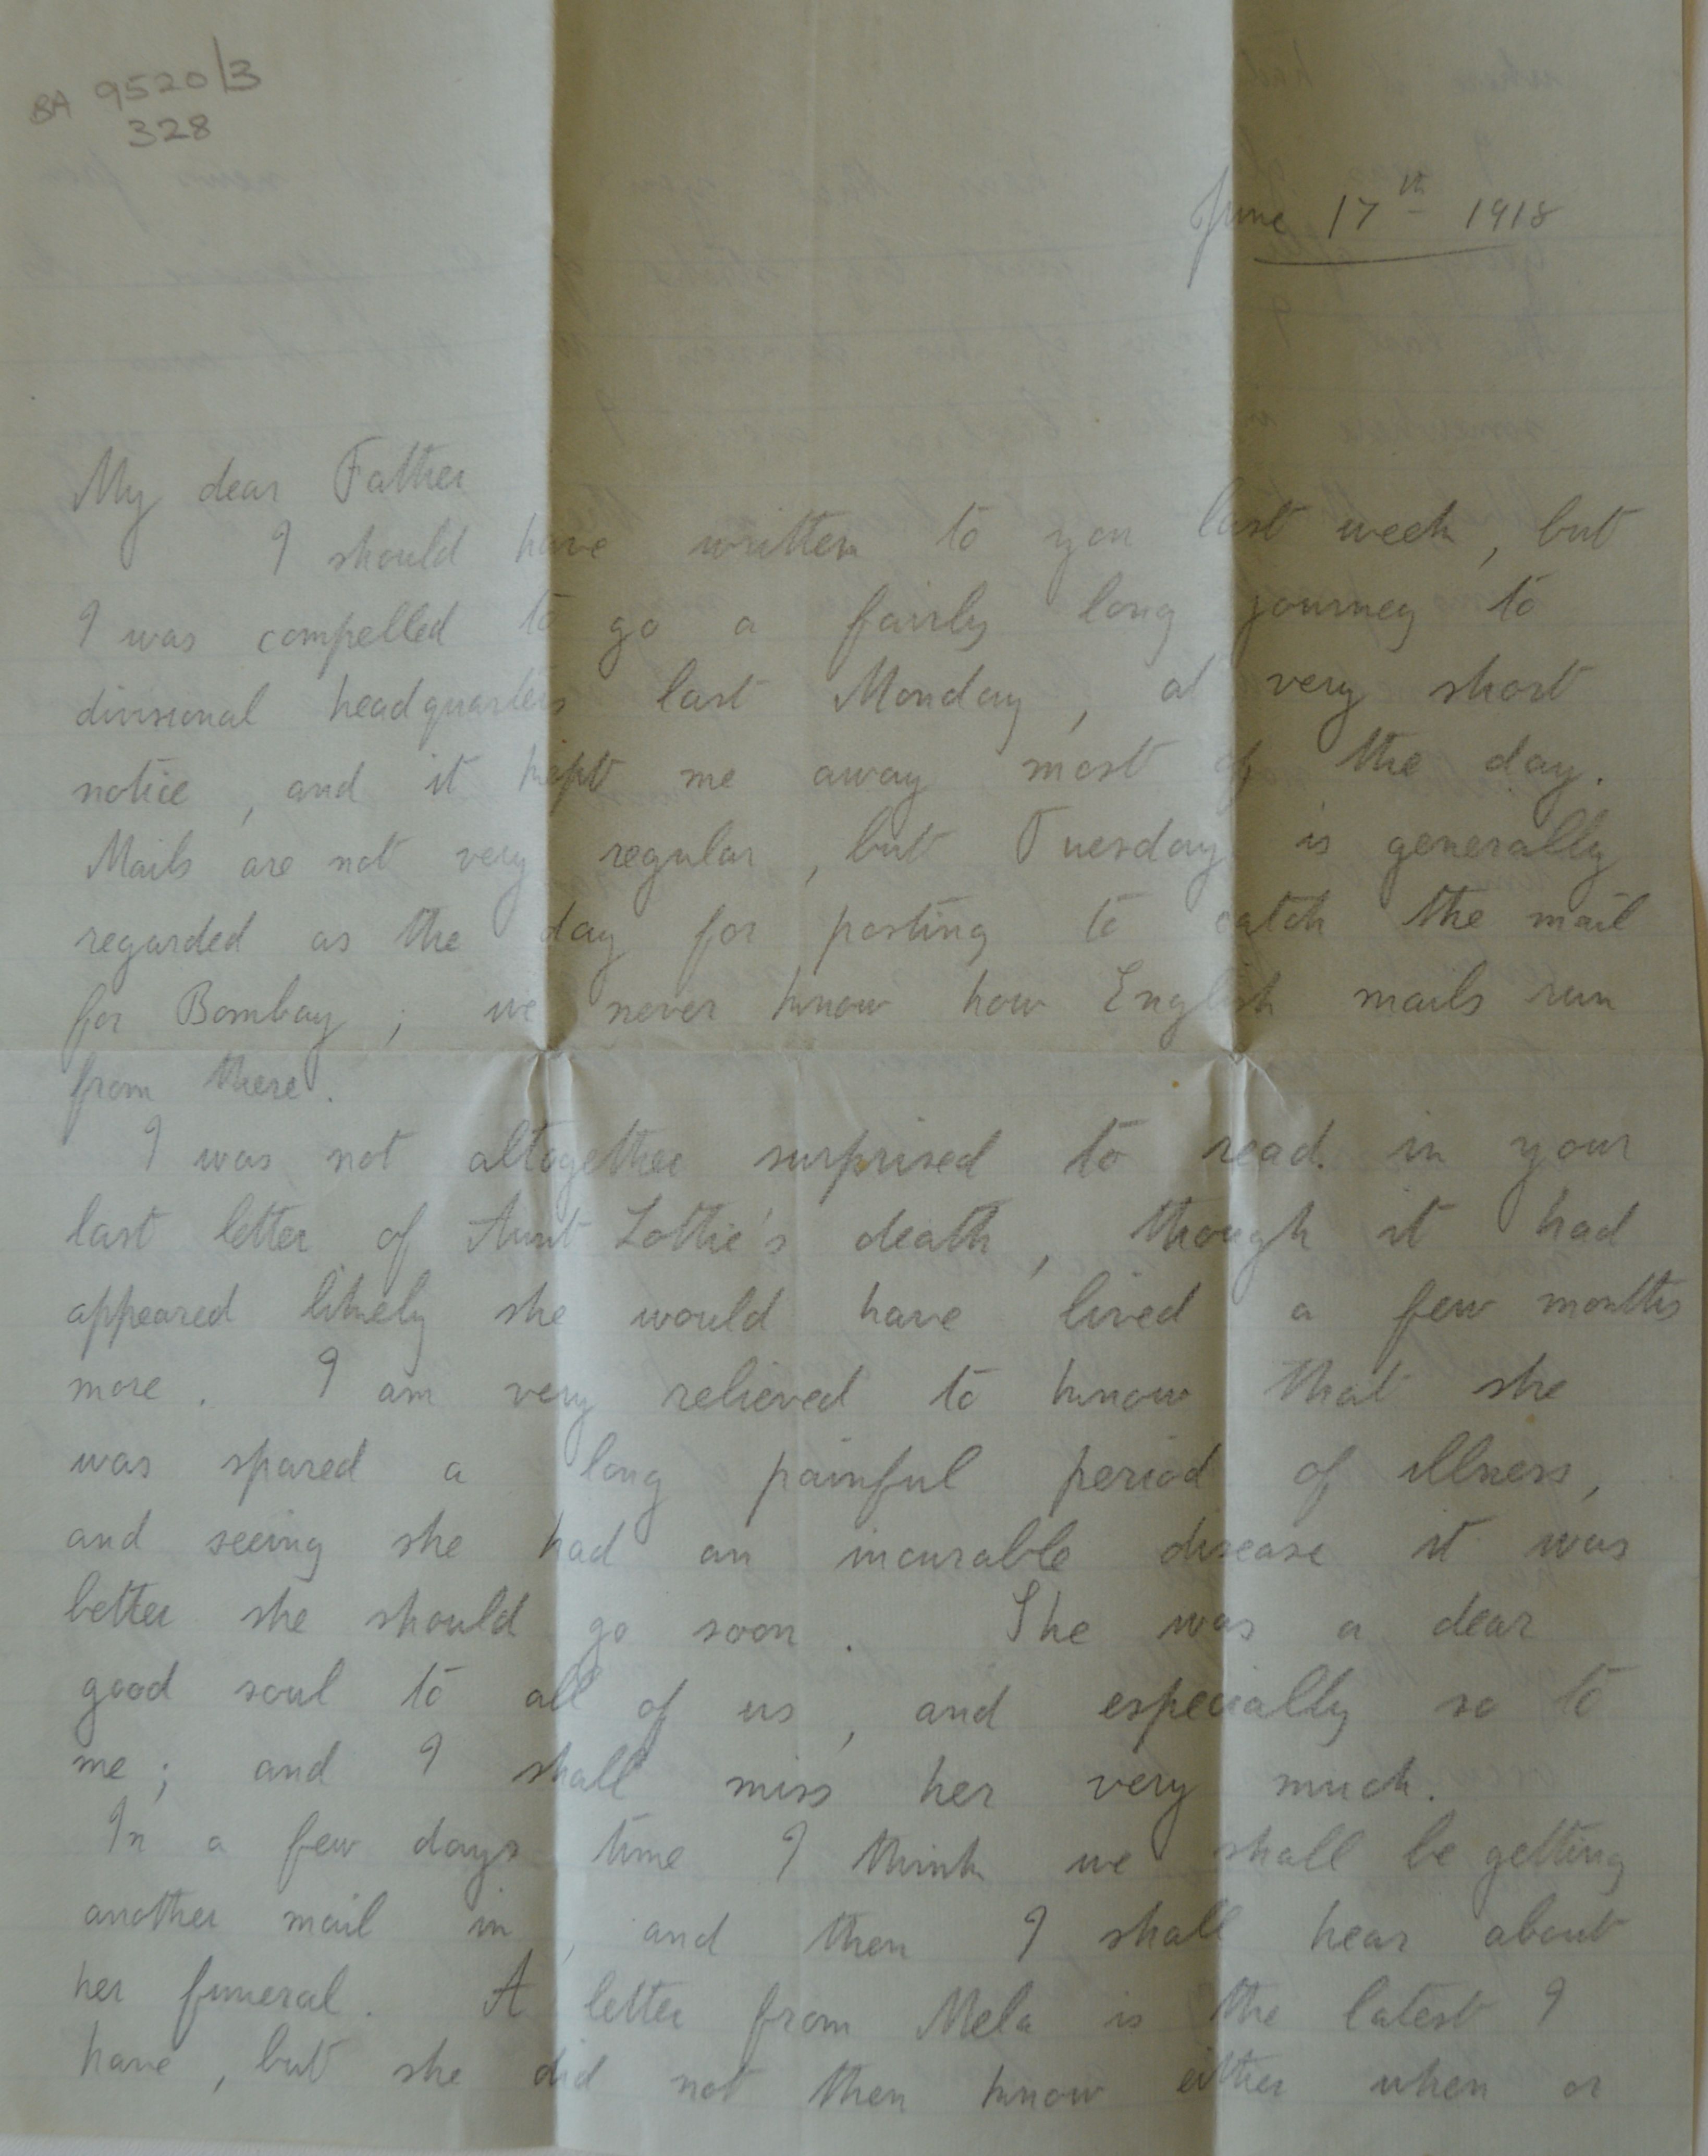 BA 9520/3
328
June 17th 1918
My dear Father
I should have written to you last week, but
I was compelled to go a fairly long journey to
divisional headquarters last Monday, at very short
notice, and it kept me away most of the day.
Mails are not very regular, but Tuesday is generally
regarded as the day for posting to catch the mail
for Bombay; we never know how English mails run
from there.
I was not altogether surprised to read in your
last letter of Aunt Lottie's death, though it had
appeared likely she would have lived a few months
more. I am very relieved to know that she
was spared a long painful period of illness,
and seeing she had an incurable disease it was
better she should go soon. She was a dear
good soul to all of us, and especially so to
me; and I shall miss her very much.
In a few days time I think we shall be getting
another mail in, and then I shall hear about
her funeral. A letter from Mela is the latest I
have, but she did not then know either when or